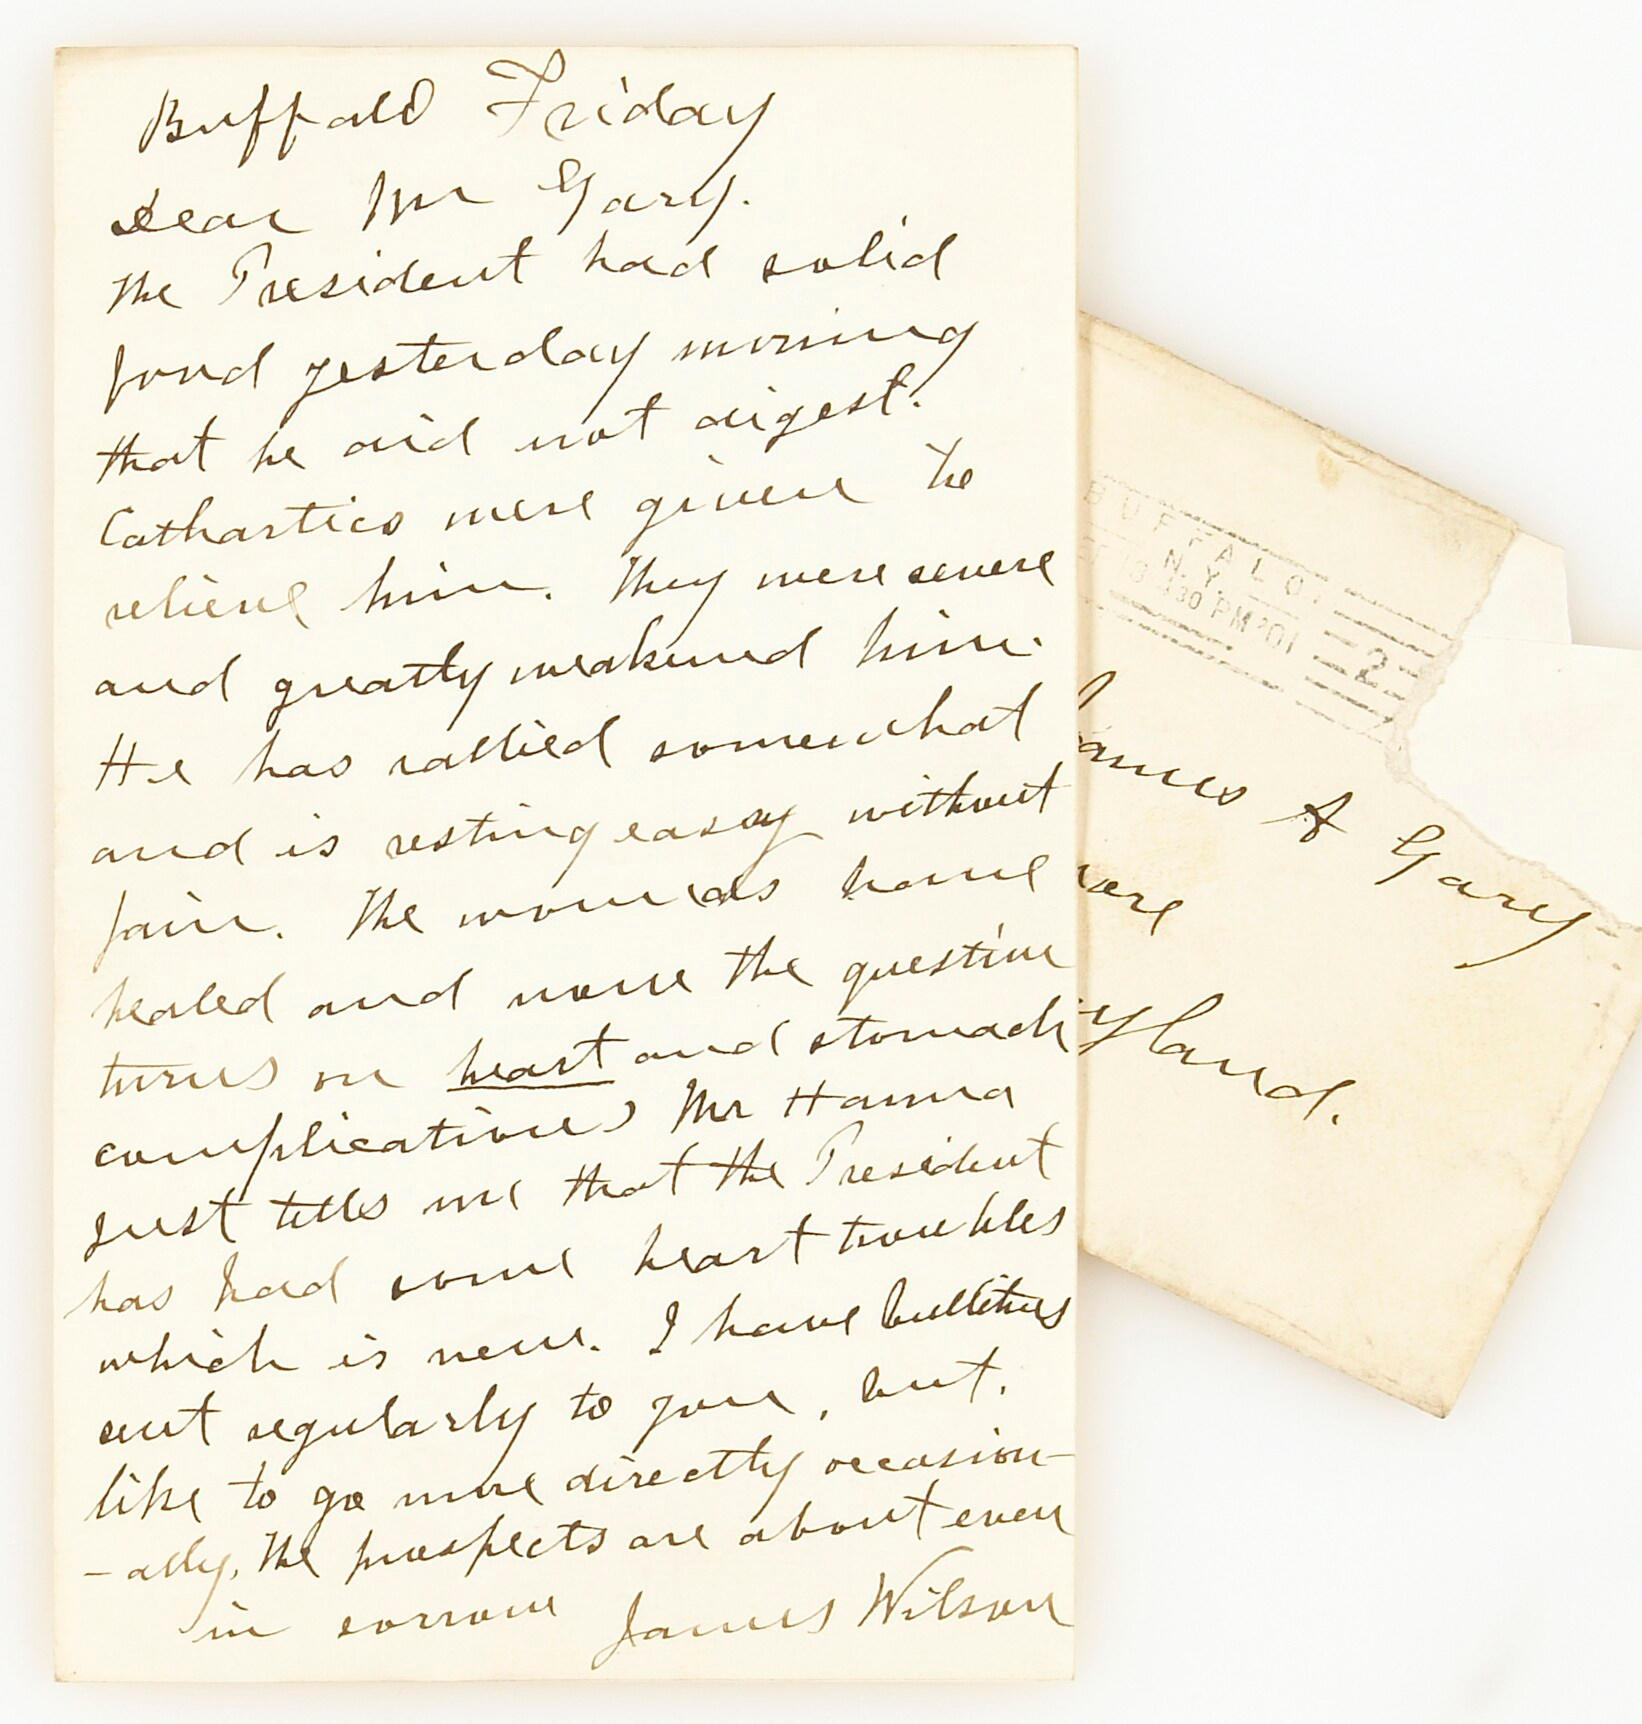 Buffalo Friday
Dear Mr Gary.
The President had solid
food yesterday morning
that he did not digest.
Cathartics were given to
relieve him. They were severe
and greatly weakened him.
He has rallied somewhat
and is resting easy without
pain. The wounds have
healed and now the question
turns on heart and stomach
complications Mr Hanna
just tells me that the President
has had some heart troubles
which is new. I have bulletins
sent regularly to you, but.
like to go more directly occasion-
-ally. The prospects are about even
in sorrow James Wilson
BUFFALO
N.Y.
30 PM '01
2
James A Gary
more
yland.